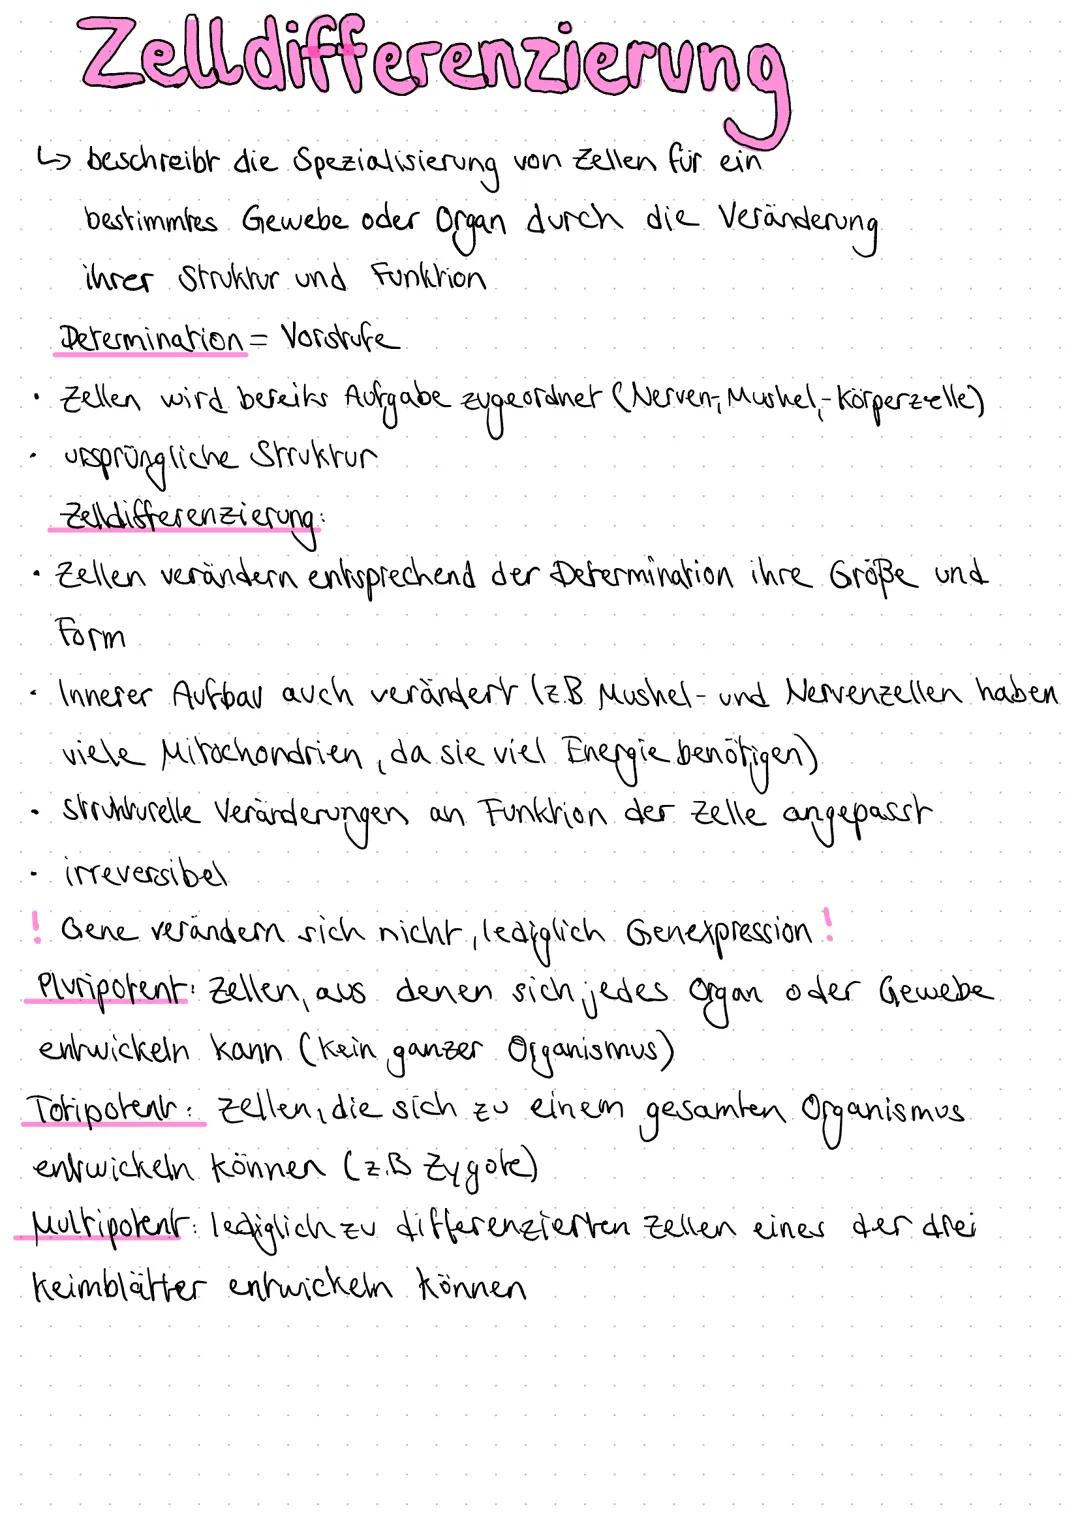 Zelldifferenzierung
↳ beschreibt die Spezialisierung von Zellen für ein
bestimmtes Gewebe oder Organ durch die Veränderung
ihrer Struktur und Funktion
Determination = Vorstufe
• Zellen wird bereits Aufgabe zugeordnet (Nerven-, Muskel,- Körperzelle)
• ursprüngliche Struktur
Zelldifferenzierung:
• Zellen verändern entsprechend der Determination ihre Größe und
Form
• Innerer Aufbau auch verändert (z.B Muskel- und Nervenzellen haben
viele Mitochondrien, da sie viel Energie benötigen)
• strukturelle Veränderungen an Funktion der Zelle angepasst
• irreversibel
! Gene verändern sich nicht, lediglich Genexpression !
Pluripotent: Zellen, aus denen sich jedes Organ oder Gewebe
entwickeln kann (kein ganzer Organismus)
Totipotent: Zellen, die sich zu einem gesamten Organismus
entwickeln können (z.B Zygote)
Multipotent: lediglich zu differenzierten Zellen eines der drei
Keimblätter entwickeln können